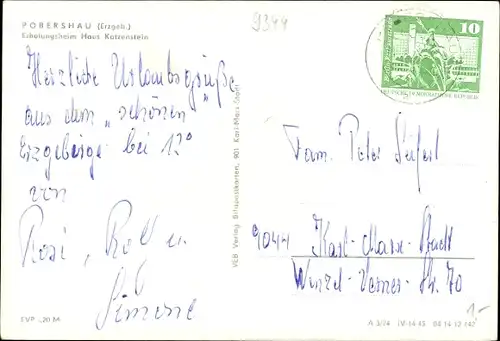 POBERSHAU (Erzgeb.)
Erholungsheim Haus Katzenstein
9344
10
DEUTSCHE DEMOKRATISCHE REPUBLIK
Herzliche Urlaubsgrüße
aus dem „schönen"
Erzgebirge bei 12°
von
Rosi, Rolf u.
Simone
VEB Verlag Bild und Karten, 901 Karl-Marx-Stadt
Fam. Peter Seifert
9044 Karl-Marx-Stadt
Str. 70
EVP -,20 M
A 3/74 IV-14-45 04 14 12 147
1,-